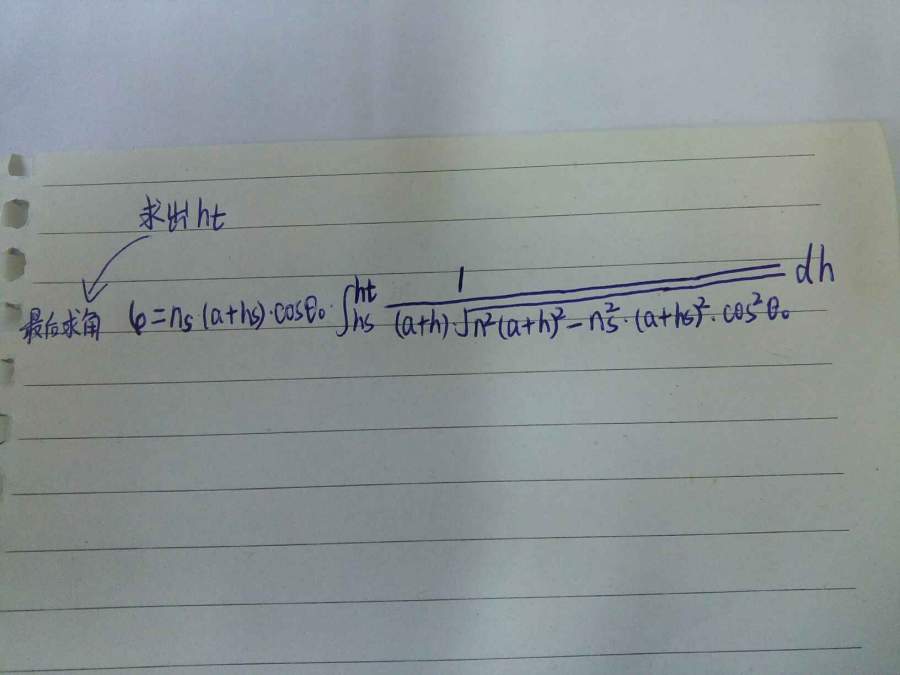 求出ht
最后求角 φ=ns·(a+hs)·cosθ₀·∫_{hs}^{ht} 1/((a+h)√(n²(a+h)²-ns²·(a+hs)²·cos²θ₀)) dh